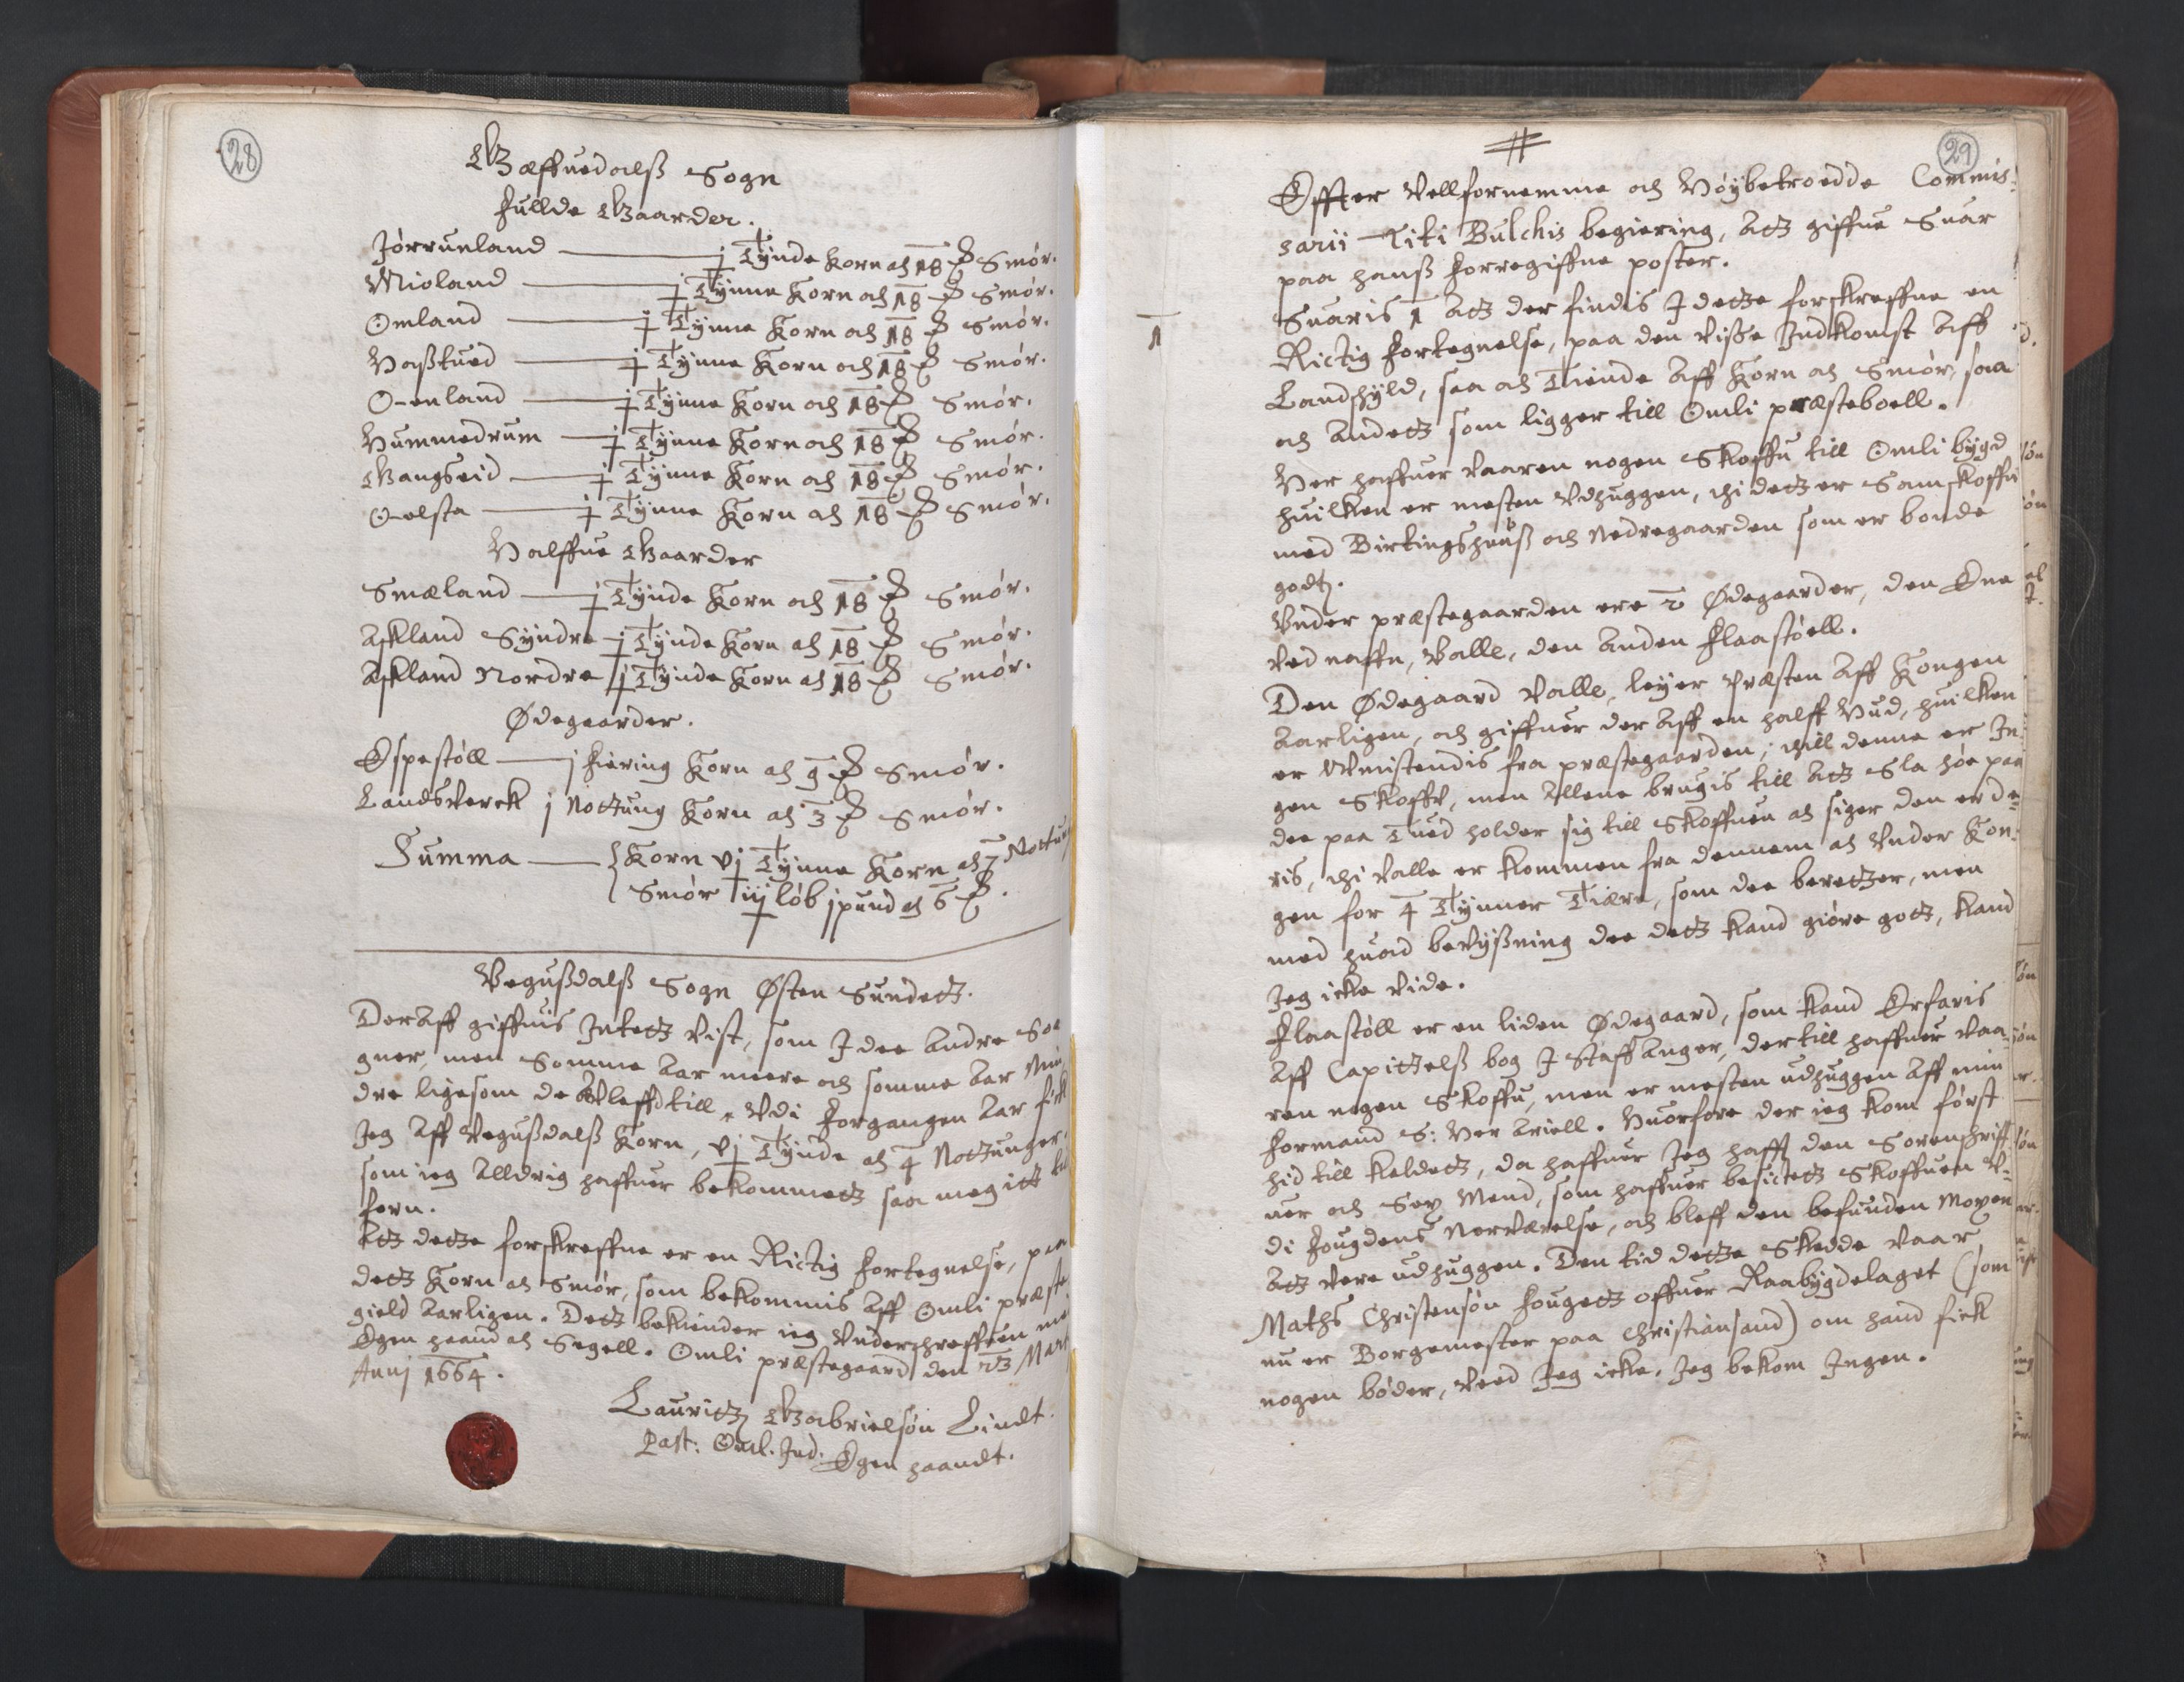 28
Gæffuedalß Sogn
fullde Gaarder.
Jørrunland j Tynde Korn och 18 ℔ Smør.
Mioland j Tynne Korn och 18 ℔ Smør.
Omland j Tynne Korn och 18 ℔ Smør.
Haßtued j Tynne Korn och 18 ℔ Smør.
Ouenland j Tynne Korn och 18 ℔ Smør.
Hummedrum j Tynne Korn och 18 ℔ Smør.
Gangseid j Tynne Korn och 18 ℔ Smør.
Oelsta j Tynne Korn och 18 ℔ Smør.
Halffue Gaarder
Smæland j Tynde Korn och 18 ℔ Smør.
Askland Syndre j Tynde Korn och 18 ℔ Smør.
Askland Nordre j Tynde Korn och 18 ℔ Smør.
Ødegaarder.
Espestøll j fiering Korn och 9 ℔ Smør.
Landsverck j Nottung Korn och 3 ℔ Smør.
Summa Korn vj Tynne Korn och 7 Nottung
Smør iij løb j pund och 6 ℔.
Vegußdalß Sogn Østen Sundett.
Deraff giffuis Intett vist, som I dee andre So
gner, men Somme aar meere och somme aar Min
dre ligesom de afleffd till. Vdi forgangen aar fick
Jeg aff Vegußdalß Korn, vj Tynde och 4 Nottunger.
som ieg alldrig haffuer bekommett saa megitt till
forn.
Att dette forskreffne er en Rictig fortegnelse, paa
dett Korn och Smør, som bekommis aff Omli præste
gield aarligen. Dett bekiender ieg Underschreffuen med
Egen haand och Segell. Omli præstegaard den 23 Mart
Anni 1664.
Lauritz Gabrielsøn Lindt.
Past: Oml. Ind. Egen haandt.
29
Effter Vellfornemme och Høybetroedde Commis:
sarii Titi Bulchis begiering, att giffue Suar
paa hanß forregiffne poster.
1
Suaris 1 att der findis I dette forskreffne en
Rictig fortegnelse, paa den visse Indkomst aff
Landskyld, saa och Tiende aff Korn och Smør, saa
och andett som ligger till Omli præsteboell.
Her haffuer vaaren nogen Skoffu till Omli bygd
huilken er mesten udhuggen, thi dett er Samskoffu
med Birtingshauß och Nedregaarden som er bonde
godtz.
Under præstegaarden ere 2 Ødegaarder, den Ene
ved naffn, Valle, den anden Flaastøell.
Den Ødegaard Valle, leyer Præsten aff Kongen
aarligen, och giffuer der aff en halff Hud, huilken
er Umistendis fra præstegaarden; till denne er In:
gen Skoffu, men allene brugis till att Sla høe paa
dee paa Tued holder sig till Skoffuen och siger den er de=
ris, thi Valle er kommen fra dennem och under Kon:
gen for 4 Tynner Tiære, som dee beretter, men
med huad beuyßning dee dett kand giøre gott, kand
Jeg icke vide.
Flaastøll er en liden Ødegaard, som kand Erfaris
aff Capittelß bog I Staffanger, dertill haffuer vaa=
ren nogen Skoffu, men er mesten udhuggen aff min
formand S: Her Ariell. Huorfore der ieg kom først
hid till kaldett, da haffuer Jeg hafft den Sorenschriff
uer och Sex Mend, som haffuer besictett Skoffuen U=
di fougdens Nerværelse, och bleff den befunden Moxen
att vere udhuggen. Den tid dette Skedde vaar
Mathß Christensøn fougett offuer Raabygdelaget (som
nu er Borgemester paa Christiansand) om hand fick
nogen bøder, veed Jeg icke. Jeg bekom Ingen.